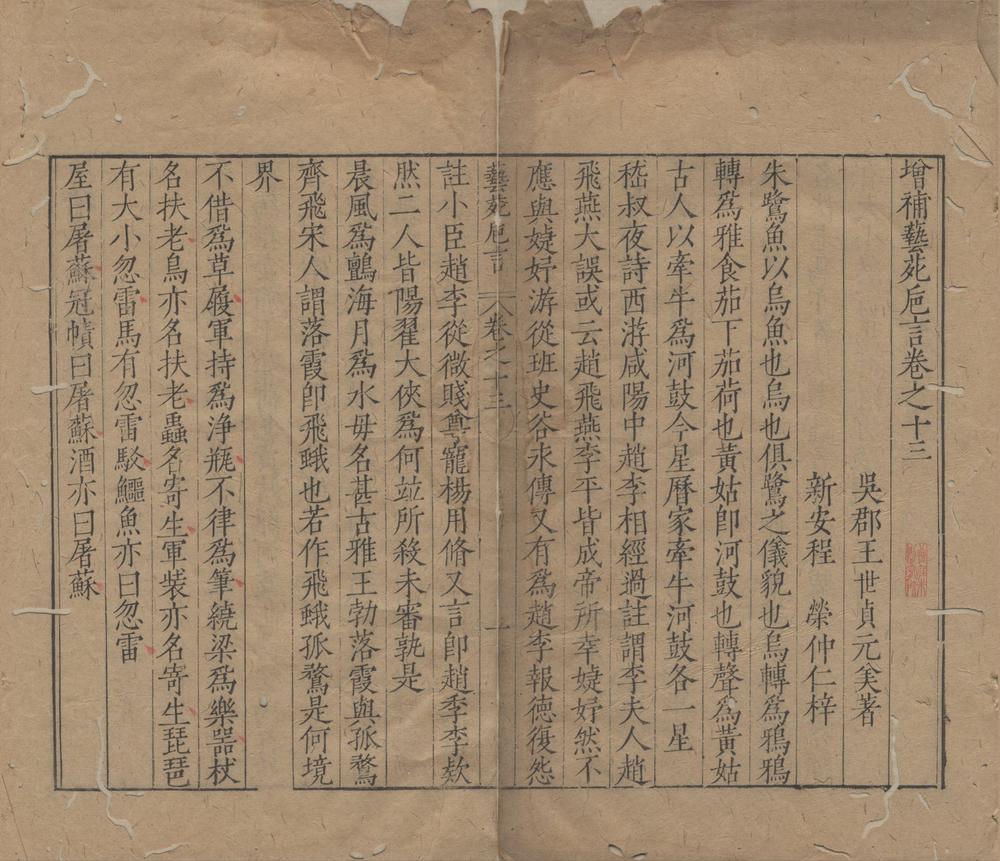 增補藝苑巵言卷之十三
吳郡王世貞元美著
新安程 榮仲仁梓
朱鷺魚以烏魚也烏也俱鷺之儀貌也烏轉爲鴉鴉
轉爲雅食茄下茄荷也黃姑卽河鼓也轉聲爲黃姑
古人以牽牛爲河鼓今星曆家牽牛河鼓各一星
嵇叔夜詩西游咸陽中趙李相經過註謂李夫人趙
飛燕大誤或云趙飛燕李平皆成帝所幸婕妤然不
應與婕妤游從班史谷永傳又有爲趙李報德復怨
藝苑巵言 卷之十三 一
註小臣趙李從微賤尊寵楊用脩又言卽趙季李欵
然二人皆陽翟大俠爲何竝所殺未審孰是
晨風爲鸇海月爲水母名甚古雅王勃落霞與孤鶩
齊飛宋人謂落霞卽飛蛾也若作飛蛾孤鶩是何境
界
不借爲草履軍持爲浄瓶不律爲筆繞梁爲樂器杖
名扶老鳥亦名扶老蟲名寄生軍裝亦名寄生琵琶
有大小忽雷馬有忽雷駁鱷魚亦曰忽雷
屋曰屠蘇冠幘曰屠蘇酒亦曰屠蘇